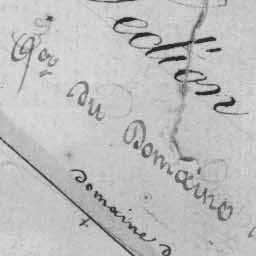 Section
du Domaine
domaine d